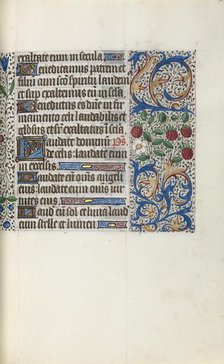 exaltate eum in secula
Benedicamus patrem et
filium cum sco spiritu laudem
et sup exaltemus eum in scla
Benedictus es dne in fir
mamento celi laudabilis et
gliosus et sup exaltatus i scla
Laudate dominum ps.
De celis laudate eum
in excelsis
Laudate eum oms angeli
eius laudate eum oms uir
tutes eius
Laud eum sol et luna laud
eum stelle et lumen